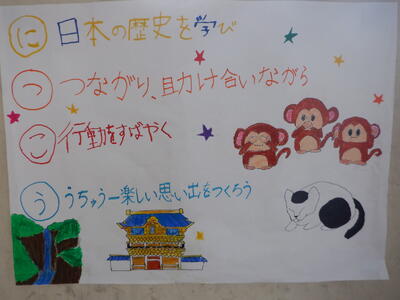 に 日本の歴史を学び
っ つながり、助け合いながら
こ 行動をすばやく
う うちゅう一楽しい思い出をつくろう